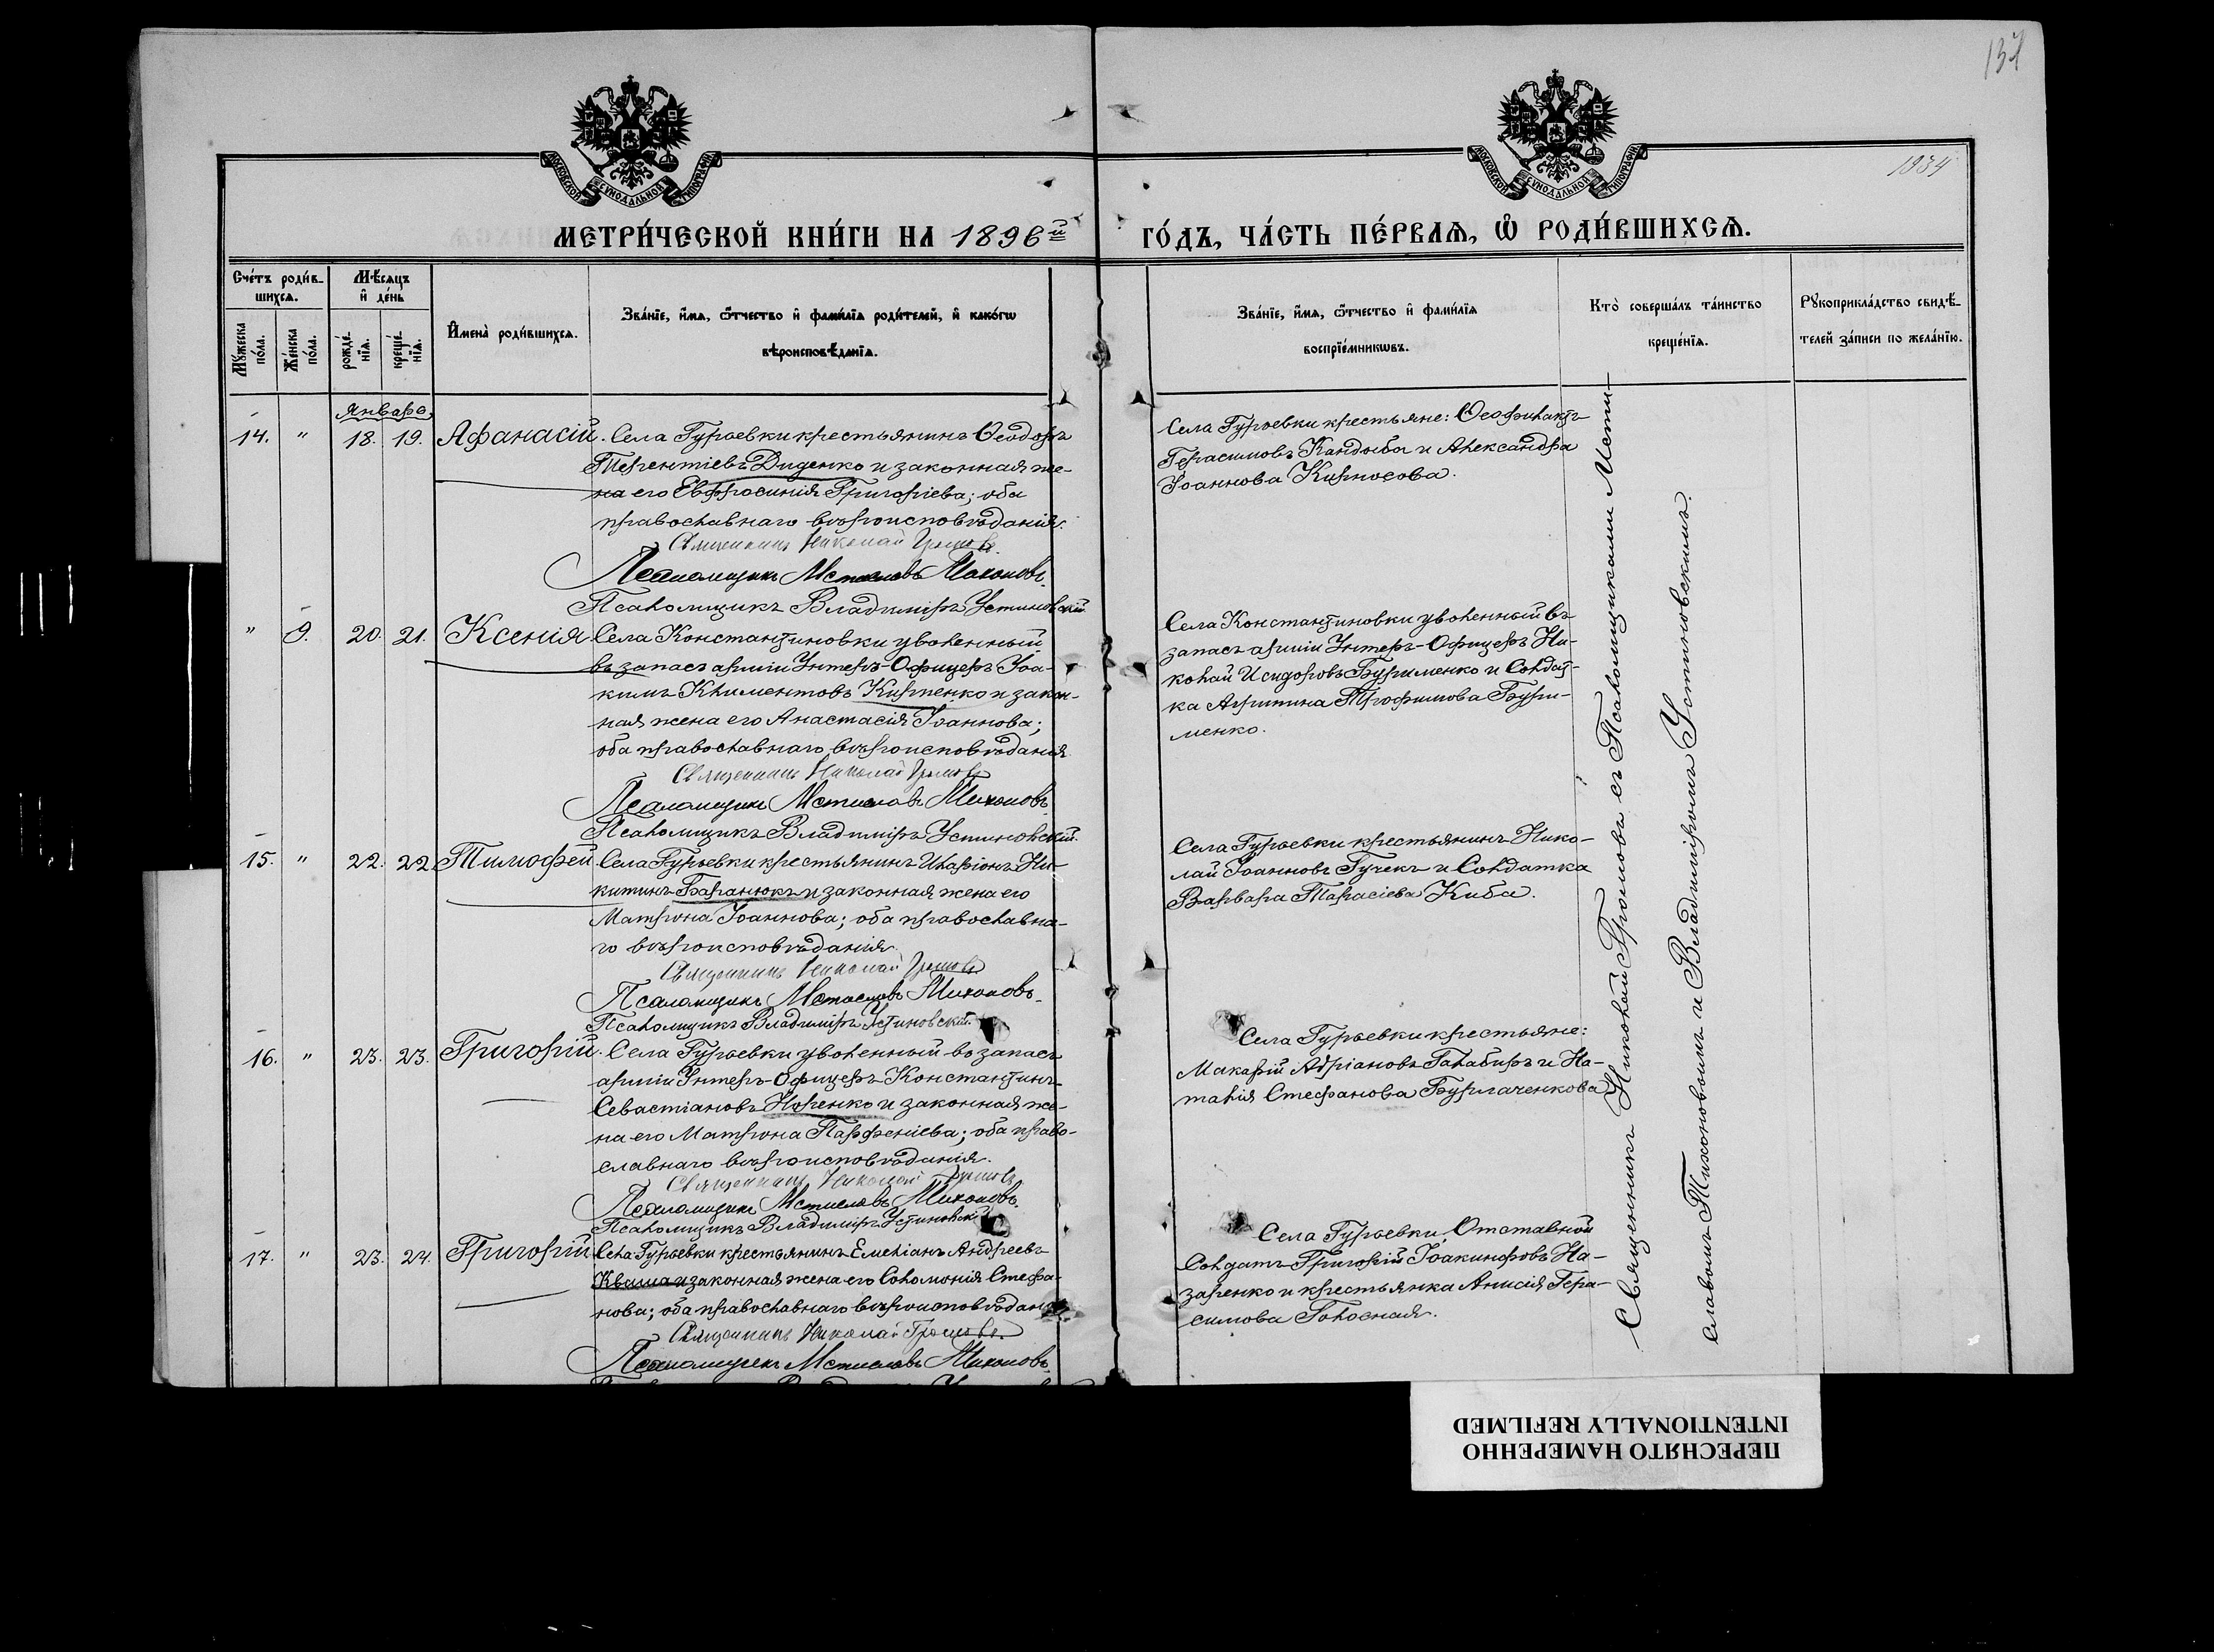 137
1934
МОСКОВСКОЙ СУНОДАЛЬНОЙ ТИПОГРАФІИ
МОСКОВСКОЙ СУНОДАЛЬНОЙ ТИПОГРАФІИ
МЕТРИ́ЧЕСКОЙ КНИ́ГИ НА 1896й
ГО́ДЪ, ЧА́СТЬ ПЕ́РВАѦ, Ѡ РОДИ́ВШИХСѦ.
Сче́тъ роди́в-
шихсѧ.
Мѣ́сѧцъ
и҆ де́нь
Мꙋжеска по́ла.
Же́нска по́ла.
рожде́нїѧ.
креще́нїѧ.
И҆мена̀ роди́вшихсѧ.
Зва́нїе, и҆́мѧ, ѻ҆́тчество и҆ фами́лїѧ роди́телей, и҆ како́гѡ
вѣроисповѣ́данїѧ.
Зва́нїе, и҆́мѧ, ѻ҆́тчество и҆ фами́лїѧ
воспрїе́мникѡвъ.
Кто̀ соверша́лъ та́инство
креще́нїѧ.
Рꙋкоприкла́дство свидѣ́-
телей за́писи по жела́нїю.
Января
14. " 18. 19. Афанасій. Села Гурьевки крестьянинъ Ѳеодоръ
Терентіевъ Диденко и законная же-
на его Евфросинія Григоріева; оба
православнаго вѣроисповѣданія.
Священникъ Николай Громовъ.
Псаломщикъ Мстиславъ Тихоновъ.
Псаломщикъ Владиміръ Устиновскій
Села Гурьевки крестьяне: Ѳеофилактъ
Герасимовъ Кандыба и Александра
Іоаннова Кирносова.
" 9. 20. 21. Ксенія Села Константиновки уволенный
въ запасъ арміи Унтеръ-Офицеръ Іоа-
кимъ Климентовъ Кирпенко и закон-
ная жена его Анастасія Іоаннова;
оба православнаго вѣроисповѣданія
Священникъ Николай Громовъ
Псаломщикъ Мстиславъ Тихоновъ
Псаломщикъ Владиміръ Устиновскій.
Села Константиновки уволенный въ
запасъ арміи Унтеръ-Офицеръ Ни-
колай Исидоровъ Буряменко и Солдат-
ка Агрипина Трофимова Буря-
менко.
15. " 22. 22. Тимофей Села Гурьевки крестьянинъ Иларіонъ Ни-
китинъ Баранюкъ и законная жена его
Матрона Іоаннова; оба православна-
го вѣроисповѣданія.
Священникъ Николай Громовъ
Псаломщикъ Мстиславъ Тихоновъ.
Псаломщикъ Владиміръ Устиновскій.
Села Гурьевки крестьянинъ Нико-
лай Іоанновъ Гучекъ и Солдатка
Варвара Тарасіева Киба.
16. " 23. 23. Григорій. Села Гурьевки уволенный въ запасъ
арміи Унтеръ-Офицеръ Константинъ
Севастіановъ Норенко и законная же-
на его Матрона Парфеніева; оба право-
славнаго вѣроисповѣданія.
Священникъ Николай Громовъ
Псаломщикъ Мстиславъ Тихоновъ.
Псаломщикъ Владиміръ Устиновскій
Села Гурьевки крестьяне:
Макарій Адріановъ Галабиръ и На-
талія Стефанова Бурлаченкова
17. " 23. 24. Григорій Села Гурьевки крестьянинъ Емеліанъ Андреевъ
Кваша и законная жена его Соломонія Стефа-
нова; оба православнаго вѣроисповѣданія
Священникъ Николай Громовъ.
Псаломщикъ Мстиславъ Тихоновъ.
Села Гурьевки Отставной
Солдатъ Григорій Іоакинфовъ На-
заренко и крестьянка Анисія Гера-
симова Голосная.
Священникъ Николай Громовъ съ Псаломщиками Мсти-
славомъ Тихоновымъ и Владиміромъ Устиновскимъ.
ПЕРЕСНЯТО НАМЕРЕННО
INTENTIONALLY REFILMED